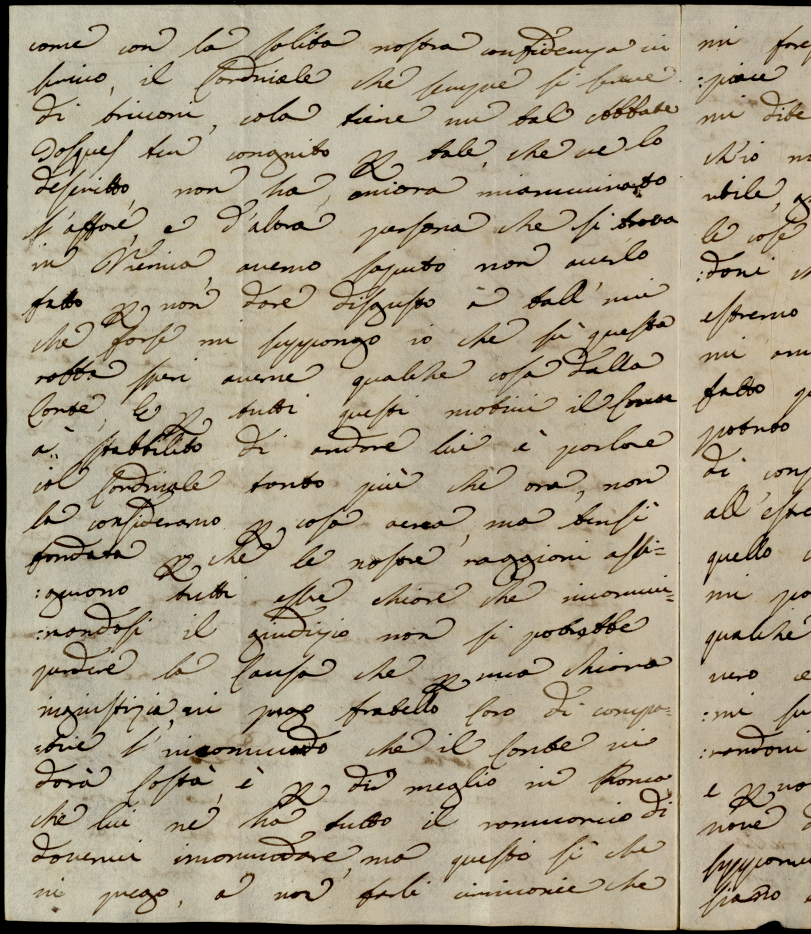 come con la solita nostra confidenza vi
scrivo, il Cordinale che sempre si serve
di briconi, cola tiene un tal Abbate
per tale, che ve lo
descritto, non ha ancora incaminato
l'affore, e d'alora persona che si trova
in Vienna, avemo saputo non averlo
fatto per non dare disgusto à tall' uni
che forse mi suppongo io che sù questa
robba speri averne qualche cosa dalla
Corte, E per tutti questi motivi il Conte
à stabbilito di andare lui è parlare
col Cordinale tanto più che ora, non
la consideramo per cosa aerea, ma bensì
fondata per che le nostre raggioni assi=
:curono tutti esse chiare che incomin=
:nandosi il giudizio non si potrebbe
perdere la Causa che per una chiara
ingiustizia, vi prego fratello Caro di compa=
:tire l'incommodo che il Conte vi
darà costà, è per dir meglio in Roma
che lui ne ha tutto il ramarico di
dovervi incomodare, ma questo sì che
vi prego, a non farli cirimonie che
mi
:piace
mi
ch'io
le cose
:doni
estremo
mi
fatto
potuto
di
quello
mi
qualche
vero
:mi
e per
nove
siano